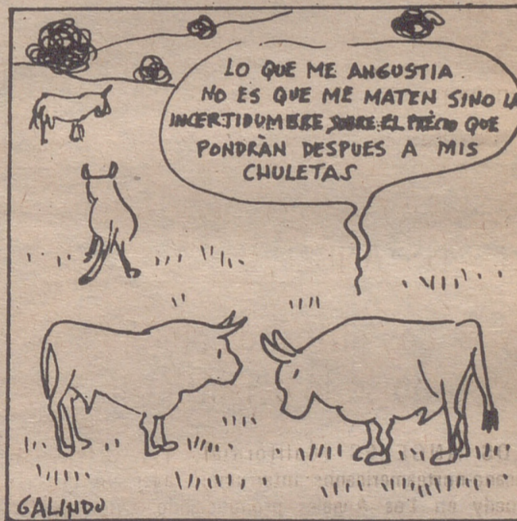 LO QUE ME ANGUSTIA
NO ES QUE ME MATEN SINO LA
INCERTIDUMBRE SOBRE EL PRÈCIO QUE
PONDRÀN DESPUES A MIS
CHULETAS
GALINDO